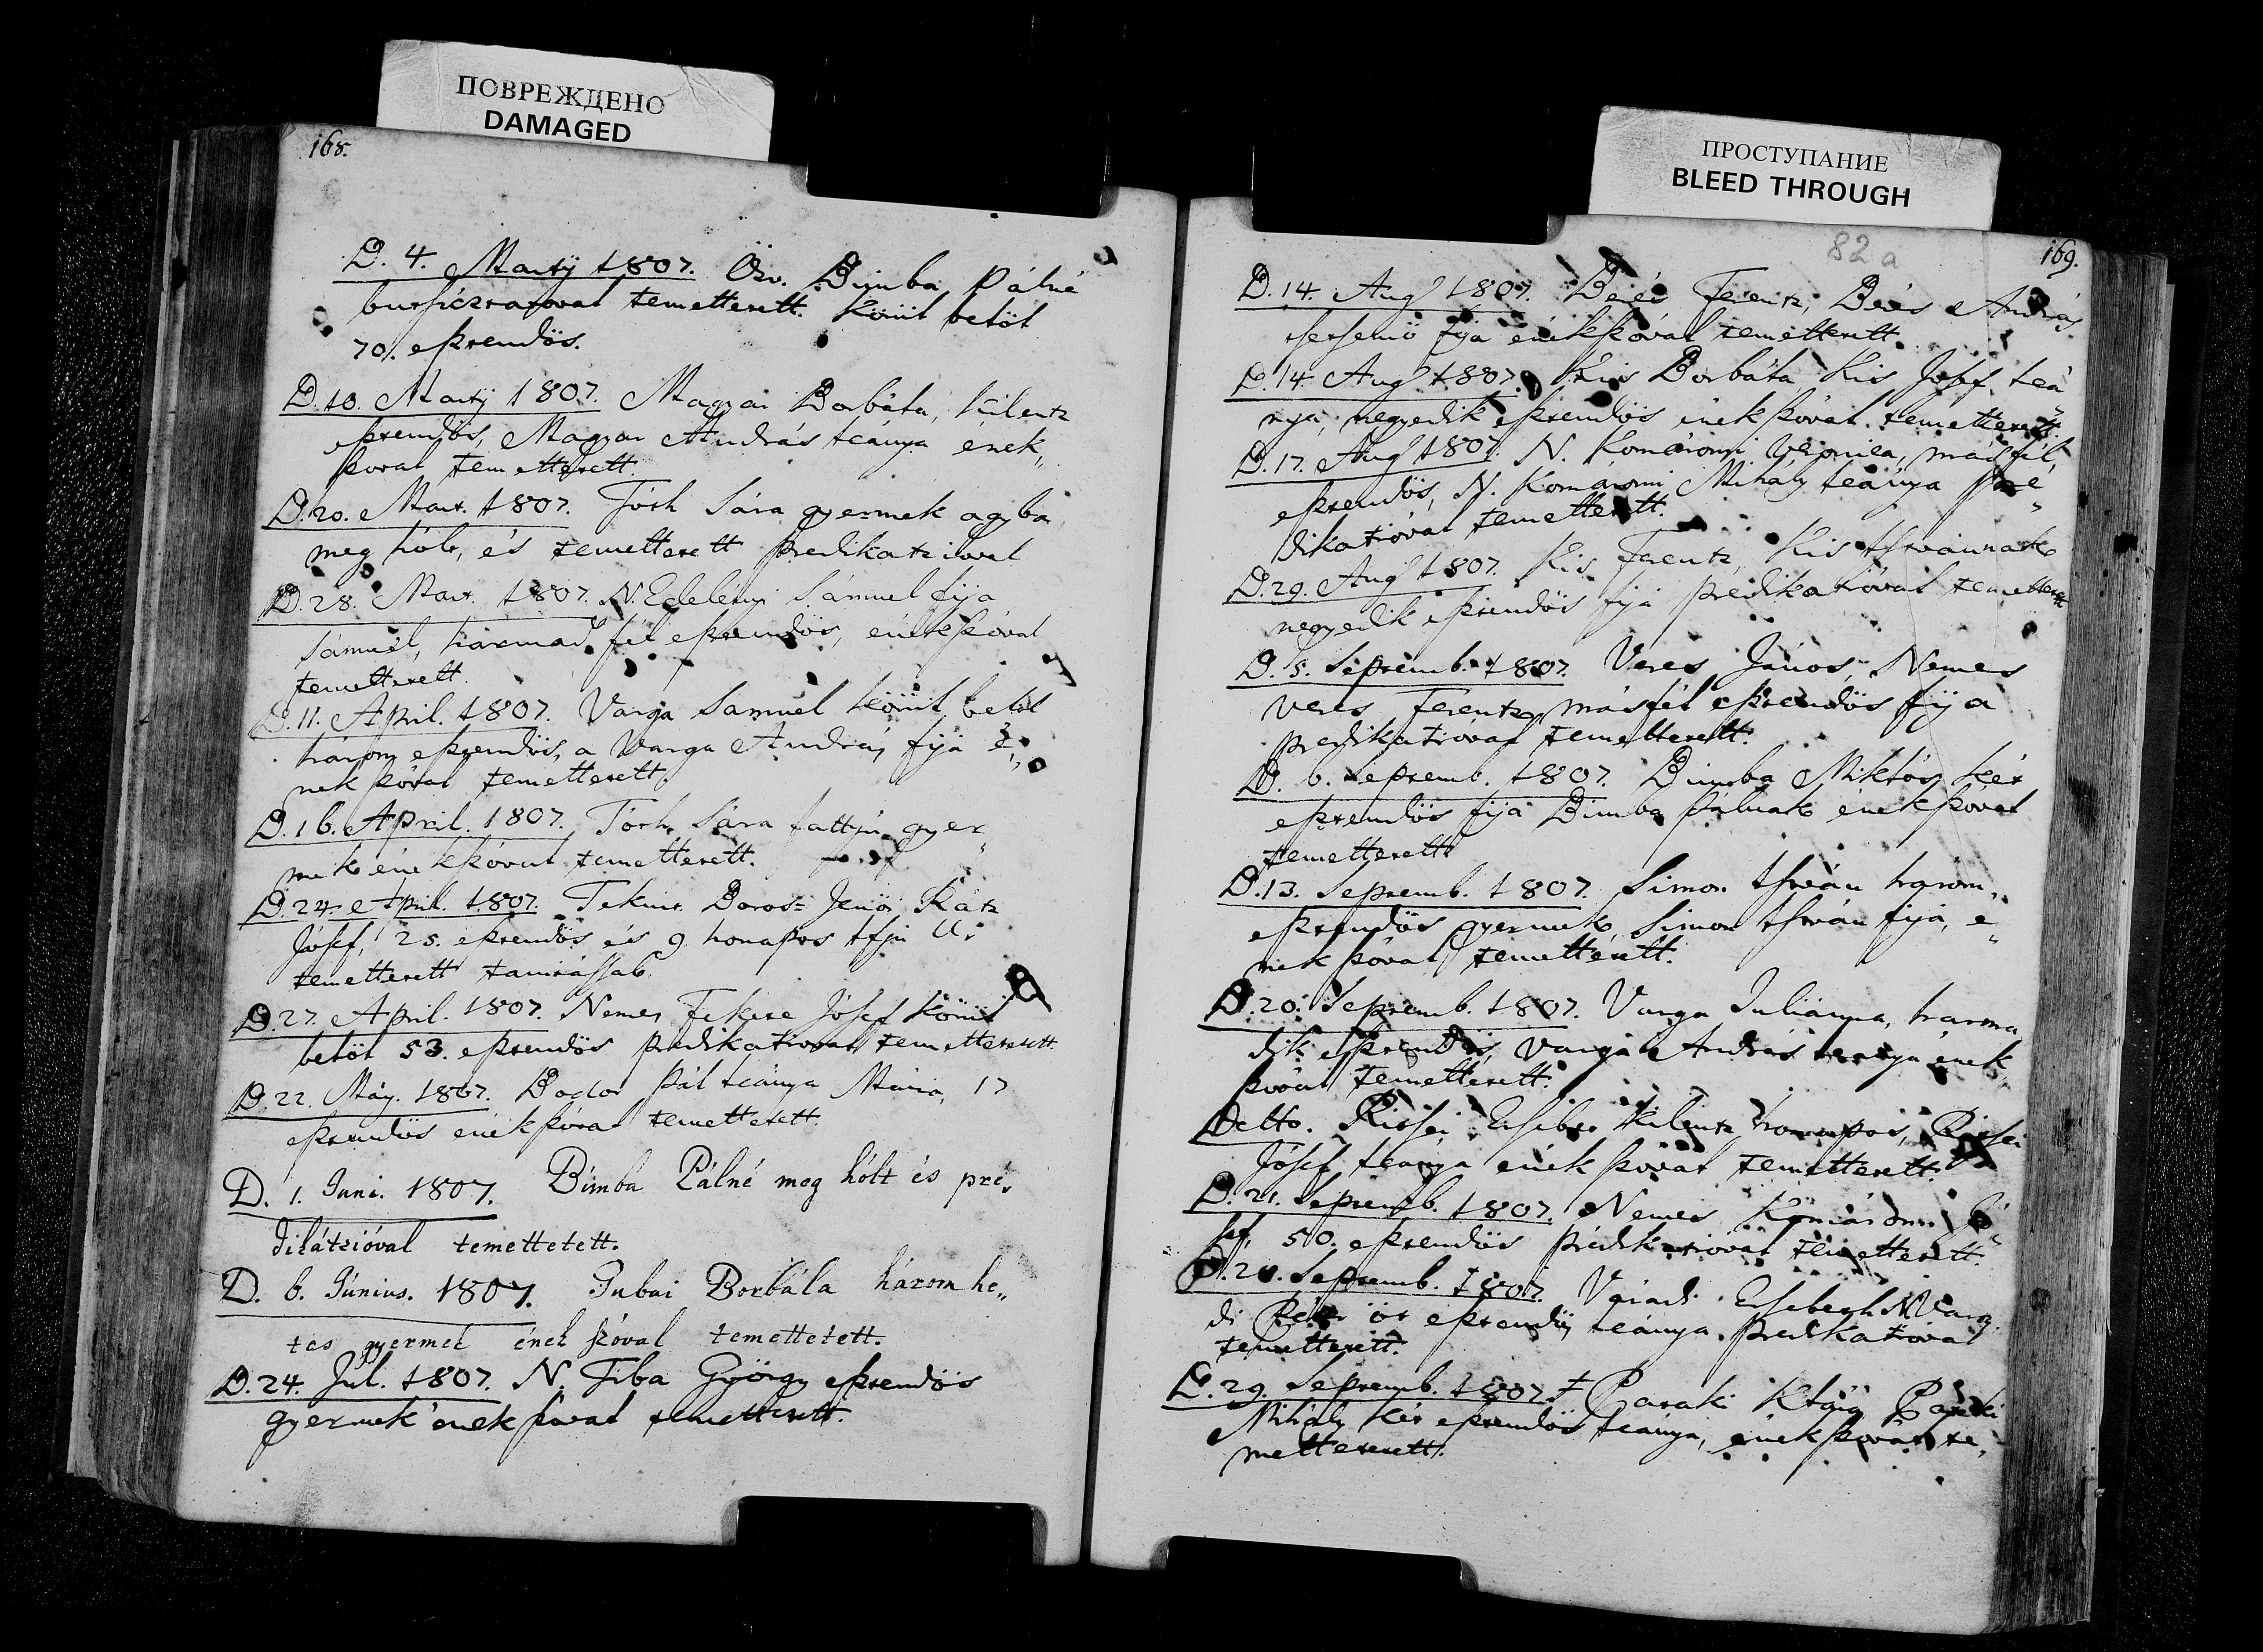 ПОВРЕЖДЕНО
DAMAGED
168.
D. 4. Martÿ 1807. Özv. Bimba Pálné
butsúztatoval temettetett. Körül belöl
70. esztendös.
D. 10. Martÿ 1807. Magyar Borbála, kilentz
esztendös, Magyar András leánya ének„
szoval temettetett.
D. 20. Mart. 1807. Tóth Sára gyermek agyba
meg hólt, és temettetett predikatzioval
D. 28. Mart. 1807. N. Edelényi Sámuel fija
Sámuel, harmad fél esztendös, énekszóval
temettetett.
D. 11. April. 1807. Varga Samuel körül belöl
három esztendös, a Varga András fija é„
nek szóval temettetett.
D. 16. April. 1807. Tóth Sára fattyú gyer„
mek énekszóval temettetett.
D. 24. April. 1807. Tekint. Boros= Jenöi Rátz
Jósef, 25. esztendös és 9. honapos Ifjú Ur
temettetett tanitással.
D. 27. April. 1807. Nemes Fekete Jósef körül
belöl 53. esztendös predikatioval temettetett.
D. 22. Máj. 1807. Bodor Pál leánya Mária, 17
esztendös énekszóval temettetett.
D. 1. Juni. 1807. Bimba Pálné meg hólt és pré„
dikátzióval temettetett.
D. 6. Június. 1807. Gubai Borbála három he„
tes gyermek ének szóval temettetett.
D. 24. Jul. 1807. N. Tiba György esztendös
gyermek ének szóval temettetett.
ПРОСТУПАНИЕ
BLEED THROUGH
82 a
169.
D. 14. Aug 1807. Béres Ferentz, Béres András
tsetsemö fija énekszóval temettetett.
D. 14. Aug 1807. Kis Borbála Kis Josef leá„
nya, negyedik esztendös énekszóval temettetett.
D. 17. Aug 1807. N. Komáromi Veronica, másfél
esztendös, N. Komaromi Mihály leánya pre„
dikatióval temettetett.
D. 29. Aug 1807. Kis Ferentz, Kis Istvánnak
negyedik esztendös fija prédikatióval temettetett
D. 5. Septemb. 1807. Veres János, Nemes
Veres Ferentz másfél esztendös fija
predikatióval temettetett.
D. 6. Septemb. 1807. Bimba Miklós két
esztendös fija Bimba Pálnak énekszóval
temettetett.
D. 13. Septemb. 1807. Simon István három„
esztendös gyermek, Simon István fija, é„
nek szóval temettetett.
D. 20. Septemb. 1807. Varga Juliánna, harma
dik esztendös, Varga András leánya ének
szóval temettetett.
Detto. Kilentz honapos,
Jósef leánya ének szóval temettetett.
D. 21. Septemb. 1807. Nemes Komáromi Jó„
sef, 50. esztendös prédikatióval temettetett.
Septemb. 1807. Váradi Ersebeth N. Vára
di Péter öt esztendös leánya predikatioval
temettetett.
D. 29. Septemb. 1807. † Pataki
Mihály két esztendös leánya, ének szóval te„
mettetett.